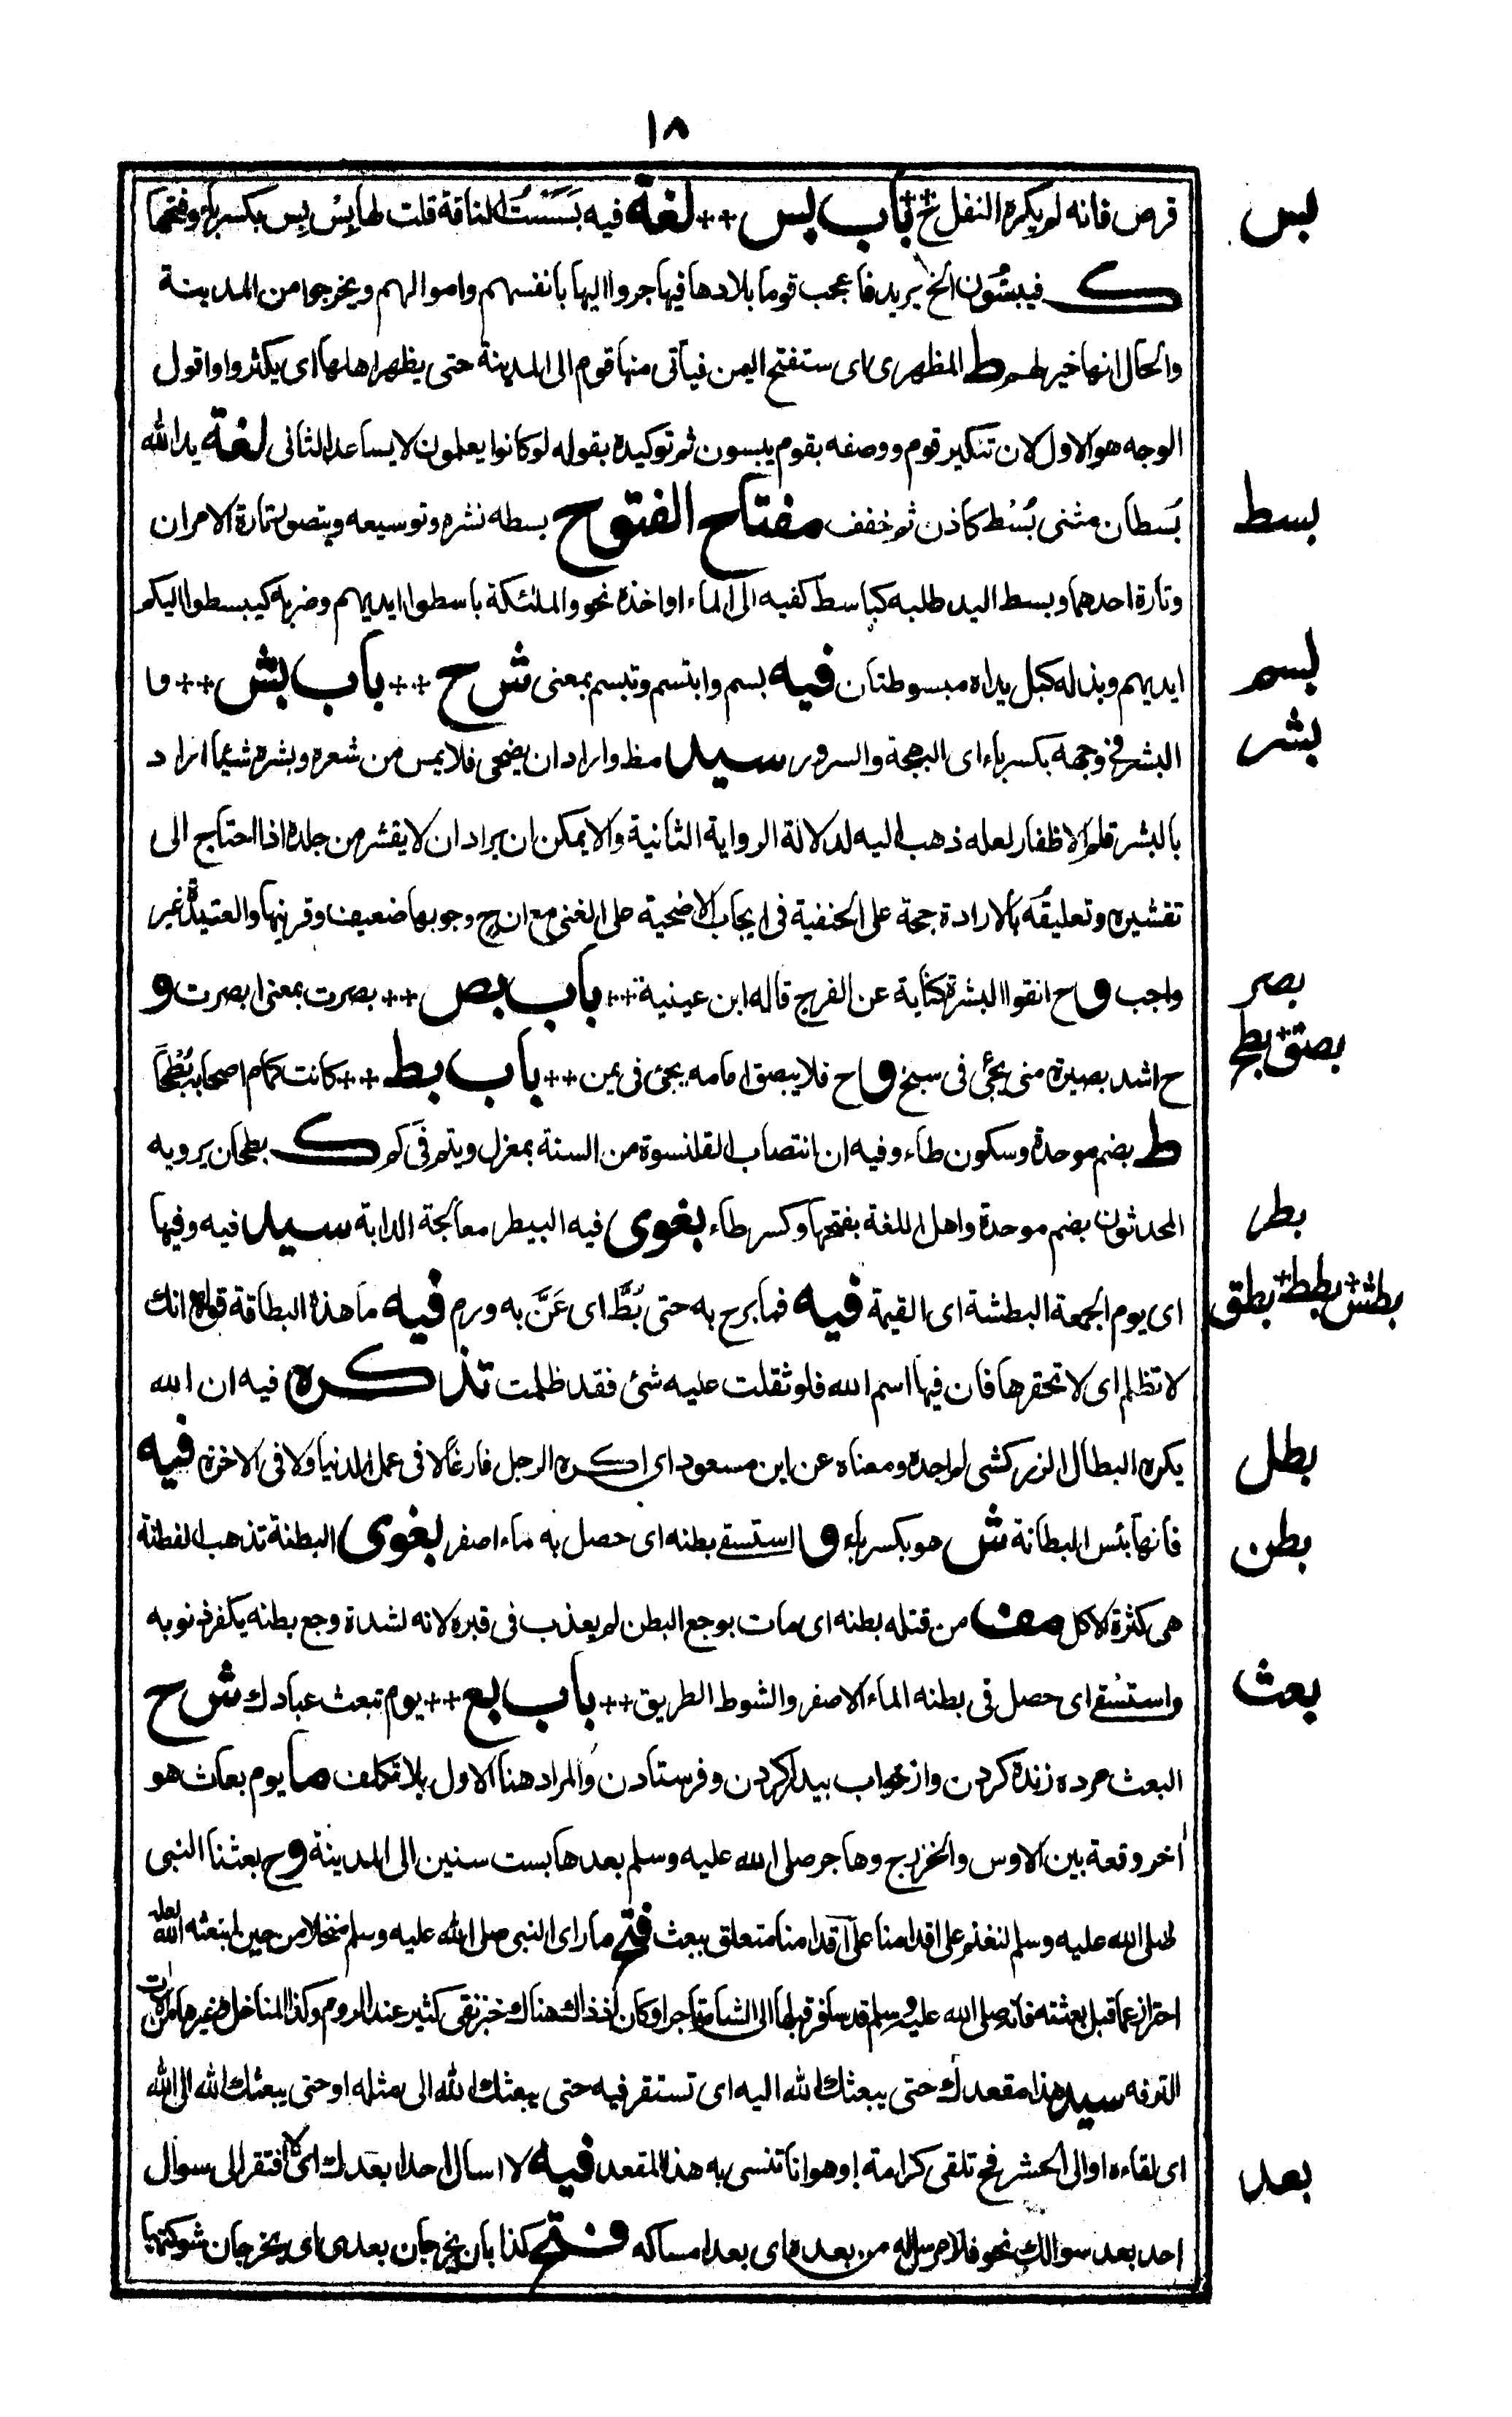 ١٨
قرص فانه لم يكره النفل خ ++ باب بس ++ لغة فيه بَسَسْتُ الناقة قلت لها بِسْ بِس بكسر باء وفتحها
بس
ك فيبسُّون الخ يريد فاعجب قوما بلادها فيهاجروا اليها بانفسهم واموالهم ويخرجوا من المدينة
والحال انها خير لهم ط المظهرى اى ستفتح اليمن فيأتى منها قوم الى المدينة حتى يظهر اهلها اى يكثروا واقول
الوجه هو الاول لان تنكير قوم ووصفه بقوم يبسون ثم توكيده بقوله لو كانوا يعلمون لا يساعد الثانى لغة يد الله
بسط
بُسطان مثنى بُسُط كاذن ثم خفف مفتاح الفتوح بسطه نشره وتوسيعه ويتصور تارة الامران
وتارة احدهما وبسط اليد طلبه كباسط كفيه الى الماء او اخذه نحو والملئكة باسطوا ايديهم وضربه كيبسطوا اليكم
بسم
ايديهم وبذله كبل يداه مبسوطتان فيه بسم وابتسم وتبسم بمعنى ش ح ++ باب بش ++ ما
بشر
البشر فى وجهه بكسر باء اى البهجة والسرور سيد مظ واراد ان يضحى فلا يمس من شعره وبشره شيئا اراد
بالبشر قلم الاظفار لعله ذهب اليه لدلالة الرواية الثانية والا يمكن ان يراد ان لا يقشر من جلده اذا احتاج الى
تقشيره وتعليقه بالارادة حجة على الحنفية فى ايجاب الاضحية على الغنى مع ان ح وجوبها ضعيف وقرينها والعتيرة غير
بصر
واجب و ح انقوا البشرة كناية عن الفرج قاله ابن عيينة ++ باب بص ++ بصرت بمعنى ابصرت و
بصق + بطح
ح اشد بصيرة منى يجئ فى سبخ و ح فلا يبصق امامه يجئ فى يمن ++ باب بط ++ كانت كمام اصحابه بُطْحًا
ط بضم موحدة وسكون طاء وفيه ان انتصاب القلنسوة من السنة بمعزل ويتم فى كم ك بطحان يرويه
بطر
المحدثون بضم موحدة واهل اللغة بفتحها وكسر طاء بغوى فيه البيطر معالجة الدابة سيد فيه وفيها
بطش + بطط + بطق
اى يوم الجمعة البطشة اى القيمة فيه فما برح به حتى بُطَّ اى عَنَّ به ورم فيه ما هذه البطاقة قوله انك
لا تظلم اى لا تحقرها فان فيها اسم الله فلو ثقلت عليه شئ فقد ظلمت تذكره فيه ان الله
بطل
يكره البطال الزركشى لم اجده ومعناه عن ابن مسعود اى اكره الرجل فارغا لا فى عمل الدنيا ولا فى الاخرة فيه
بطن
فانها بئس البطانة ش هو بكسر باء و استسقى بطنه اى حصل به ماء اصفر بغوى البطنة تذهب الفطنة
هى كثرة الاكل مف من قتله بطنه اى مات بوجع البطن لم يعذب فى قبره لانه لشدة وجع بطنه يكفر ذنوبه
بعث
واستسقى اى حصل فى بطنه الماء الاصفر والشوط الطريق ++ باب بع ++ يوم تبعث عبادك ش ح
البعث مرده زنده كردن واز خواب بيدار كردن وفرستادن والمراد هنا الاول بلا تكلف ما يوم بعاث هو
اخر وقعة بين الاوس والخزرج وهاجر صلى الله عليه وسلم بعدها بست سنين الى المدينة و ح بعثنا النبى
صلى الله عليه وسلم لنغنم على اقدامنا على اقدامنا متعلق ببعث فتح ما راى النبى صلى الله عليه وسلم منخلا من حين ابتعثه الله لعله
احتراز عما قبل بعثته فانه صلى الله عليه وسلم قد سافر قبلها الى الشام تاجرا وكان اذ ذاك هناك خبز نقى كثير عند الروم وكذا المناخل وغيرها من الات
الترفه سيد هذا مقعدك حتى يبعثك الله اليه اى تستقر فيه حتى يبعثك الله الى مثله او حتى يبعثك الله الى الله
اى لقاءه او الى الحشر فح تلقى كرامة او هوانا تنسى به هذا المقعد فيه لا اسال احدا بعدك اى لا افتقر الى سوال
بعد
احد بعد سوالك نحو فلا مرسل له من بعده اى بعد امساكه فتح كذابان يخرجان بعدى اى يخرجان شوكتهما